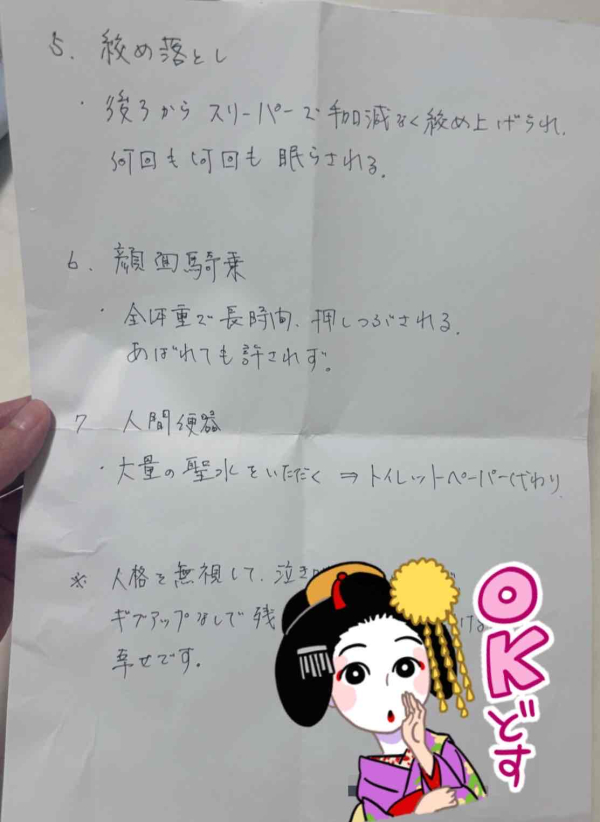 5. 絞め落とし
・後ろからスリーパーで手加減なく絞め上げられ、
何回も何回も眠らされる。
6. 顔面騎乗
・全体重で長時間、押しつぶされる。
あばれても許されず。
7 人間便器
・大量の聖水をいただく ⇒ トイレットペーパー代わり
※ 人格を無視して、泣き
ギブアップなしで残
幸せです。
OKどす